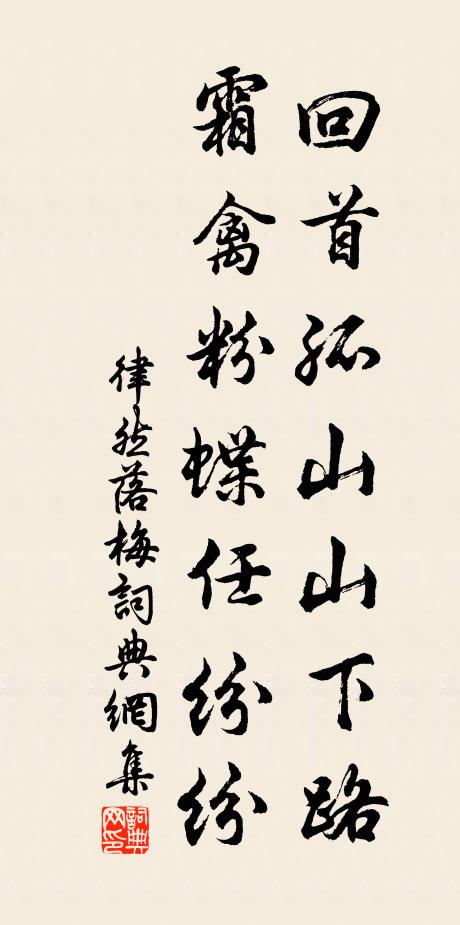 回首孤山山下路
霜禽粉蝶任紛紛
律然落梅詞典網集
詞典網印